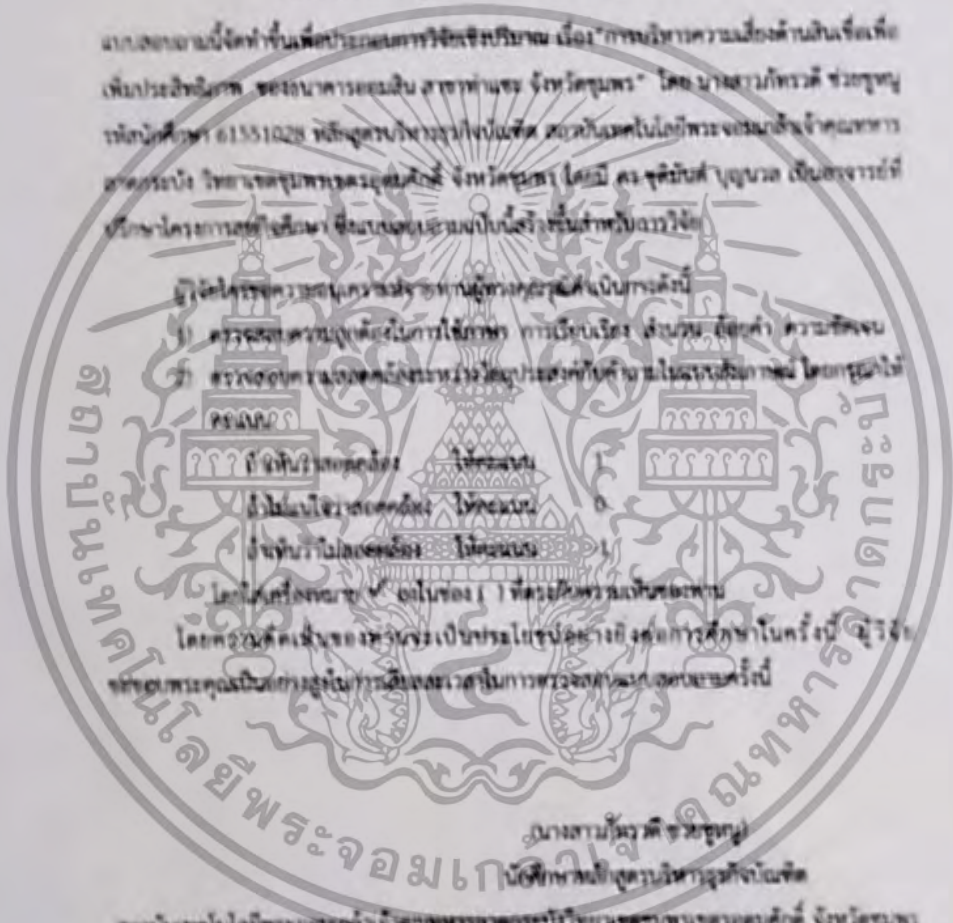 แบบสอบถามนี้จัดทำขึ้นเพื่อประกอบการวิจัยเชิงปริมาณ เรื่อง "การบริหารความเสี่ยงด้านสินเชื่อเพื่อ
เพิ่มประสิทธิภาพ ของธนาคารออมสิน สาขาท่าแซะ จังหวัดชุมพร" โดย นางสาวภัทรวดี ช่วยชูหนู
รหัสนักศึกษา 61551028 หลักสูตรบริหารธุรกิจบัณฑิต สถาบันเทคโนโลยีพระจอมเกล้าเจ้าคุณทหาร
ลาดกระบัง วิทยาเขตชุมพรเขตรอุดมศักดิ์ จังหวัดชุมพร โดยมี ดร.ชุติมันต์ บุญนวล เป็นอาจารย์ที่
ปรึกษาโครงการสหกิจศึกษา ซึ่งแบบสอบถามฉบับนี้สร้างขึ้นสำหรับการวิจัย
ผู้วิจัยใคร่ขอความอนุเคราะห์จากท่านผู้ทรงคุณวุฒิดำเนินการดังนี้
1) ตรวจสอบความถูกต้องในการใช้ภาษา การเรียบเรียง สำนวน ถ้อยคำ ความชัดเจน
2) ตรวจสอบความสอดคล้องระหว่างวัตถุประสงค์กับคำถามในแบบสัมภาษณ์ โดยกรุณาให้
คะแนน
ถ้าเห็นว่าสอดคล้อง ให้คะแนน 1
ถ้าไม่แน่ใจว่าสอดคล้อง ให้คะแนน 0
ถ้าเห็นว่าไม่สอดคล้อง ให้คะแนน -1
โดยใส่เครื่องหมาย ✓ ลงในช่อง ( ) ที่ตรงกับความเห็นของท่าน
โดยความคิดเห็นของท่านจะเป็นประโยชน์อย่างยิ่งต่อการศึกษาในครั้งนี้ ผู้วิจัย
ขอขอบพระคุณเป็นอย่างสูงในการเสียสละเวลาในการตรวจสอบแบบสอบถามครั้งนี้
(นางสาวภัทรวดี ช่วยชูหนู)
นักศึกษาหลักสูตรบริหารธุรกิจบัณฑิต
สถาบันเทคโนโลยีพระจอมเกล้าเจ้าคุณทหารลาดกระบัง